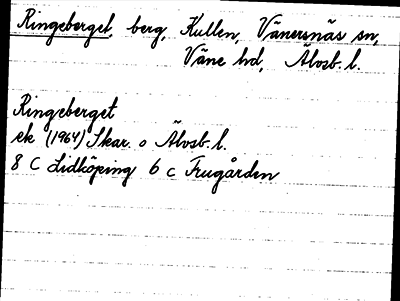 Ringeberget, berg, Kullen, Vänersnäs sn,
Väne hd, Älvsb. l.
Ringeberget
ek (1964) Skar. o Älvsb. l.
8 C Lidköping 6 c Frugården